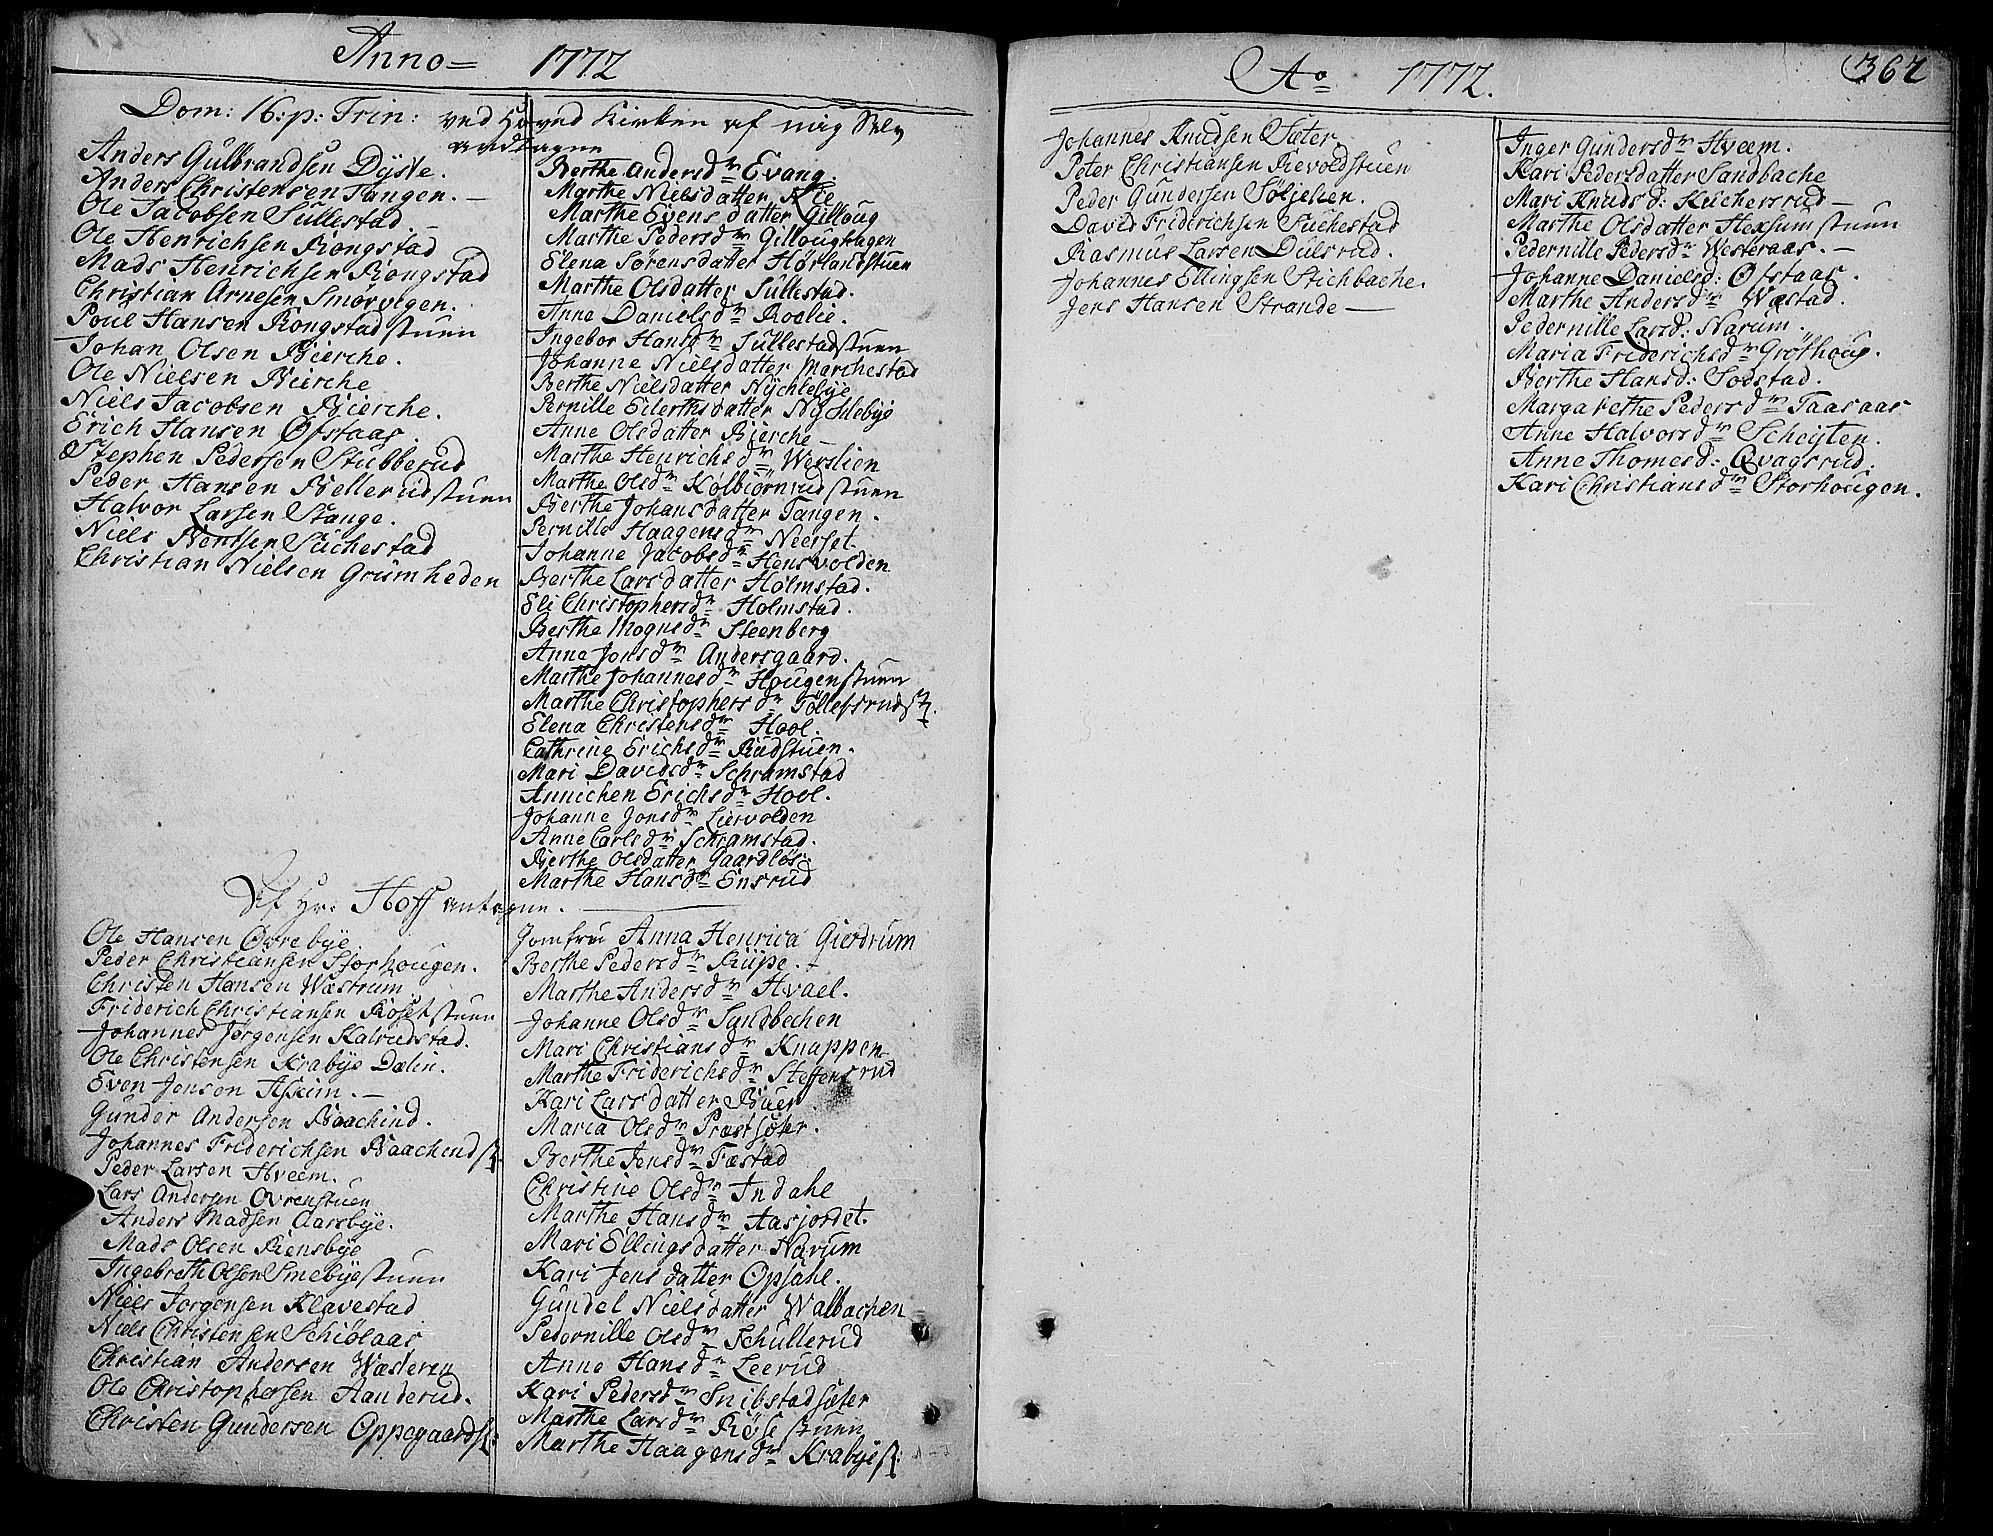 Anno 1772
Dom: 16: p: Trin: ved Hoved Kirken af mig Selv
andtagne
Anders Gulbrandsen Dyste.
Anders Christensen Tangen.
Ole Jacobsen Sullestad
Ole Henrichsen Kongstad
Mads Henrichsen Kongstad
Christian Arnesen Smørvigen.
Poul Hansen Kongstadstuen
Johan Olsen Bierche.
Ole Nielsen Bierche
Niels Jacobsen Bierche.
Erich Hansen Øfstaas.
Stephen Pedersen Stubberud
Peder Hansen Bellerudstuen
Halvor Larsen Stange.
Niels Bentsen Suchestad
Christian Nielsen Grümheden
Berthe Andersdr Evang.
Marthe Nielsdatter Lie
Marthe Evensdatter Gilloug
Marthe Pedersdr Gilloughagen
Elena Sørensdatter Hørlandstuen
Marthe Olsdatter Sullestad.
Anne Danielsdr Roelie.
Ingebor Hansdr Sullestadstuen
Johanne Nielsdatter Marchestad
Berthe Nielsdatter Nychlebye
Pernille Eilerthsdatter Nychlebye
Anne Olsdatter Bierche
Marthe Henrichsdr Werslien
Marthe Olsdr Kolbiørnrudstuen
Berthe Johansdatter Tangen.
Pernille Haagensdr Neerset
Johanne Jacobsdr Hensvolden
Berthe Larsdatter Holmstad.
Eli Christophersdr Holmstad.
Berthe Mognsdr Steenberg
Anne Jonsdr Andersgaard.
Marthe Johannesdr Hougenstuen
Marthe Christophersdr Tøllefsrudst.
Elena Christensdr Hool.
Cathrine Erichsdr Rudstuen.
Mari Davidsdr Schramstad
Annichen Erichsdr Hool.
Johanne Jonsdr Liervolden
Anne Carlsdr Schramstad.
Berthe Olsdatter Gaardløs.
Marthe Hansdr Ensrud
Af Hr: Hoff antagne.
Ole Hansen Øvrebye.
Peder Christiansen Storhougen.
Christen Hansen Wæstrum
Friderich Christiansen Rosetstuen
Johannes Jørgensen Kalrudstad.
Ole Christensen Krabye Dælin.
Even Jensen Askim.
Gunder Andersen Baachind.
Johannes Friderichsen Baachendst.
Peder Larsen Hveem.
Lars Andersen Ovrenstuen
Anders Madsen Aarsbye.
Mads Olsen Riensbye
Ingebreth Olsen Smebyestuen
Niels Jorgensen Klavestad
Niels Christensen Schiølaas
Christian Andersen Wæsteren
Ole Christophersen Aanderud.
Christen Gundersen Oppegaardst.
Jomfru Anna Henrica Gierdrum
Berthe Pedersdr Rüpe.
Marthe Andersdr Hvael.
Johanne Olsdr Sandbechen
Mari Christiansdr Knappen
Marthe Friderichsdr Steffensrud
Kari Larsdatter Buer
Maria Olsdr Præstsæter.
Berthe Jensdr Fæstad
Christine Olsdr Indahl
Marthe Hansdr Aasjordet.
Mari Ellingsdatter Narum
Kari Jensdatter Opsahl.
Gundel Nielsdatter Walbachen
Pedernille Olsdr Schullerud
Anne Hansdr Leerud
Kari Pedersdr Snibstadsæter
Marthe Larsdr Røisestuen
Marthe Haagensdr Krabyest:
Ao 1772.
362
Johannes Knudsen Sæter.
Peter Christiansen Rievoldstuen
Peder Gundersen Søljelien.
David Friderichsen Suchestad
Rasmus Larsen Dulsrud.
Johannes Ellingsen Stichbache.
Jens Hansen Strande
Inger Gundersdr Hveem.
Kari Pedersdatter Sandbache
Mari Knudsd: Kuchersrud
Marthe Olsdatter Hexumstuen
Pedernille Pedersdr Westeraas.
Johanne Danielsd: Øfstaas.
Marthe Andersdr Wæstad.
Pedernille Larsd: Narum.
Maria Friderichsdr Grøthoug.
Berthe Hansd: Sodstad.
Margarethe Pedersdr Taasaas
Anne Halvorsdr Scheyten.
Anne Thomesd: Qvagsrud.
Kari Christiansdr Storhougen.